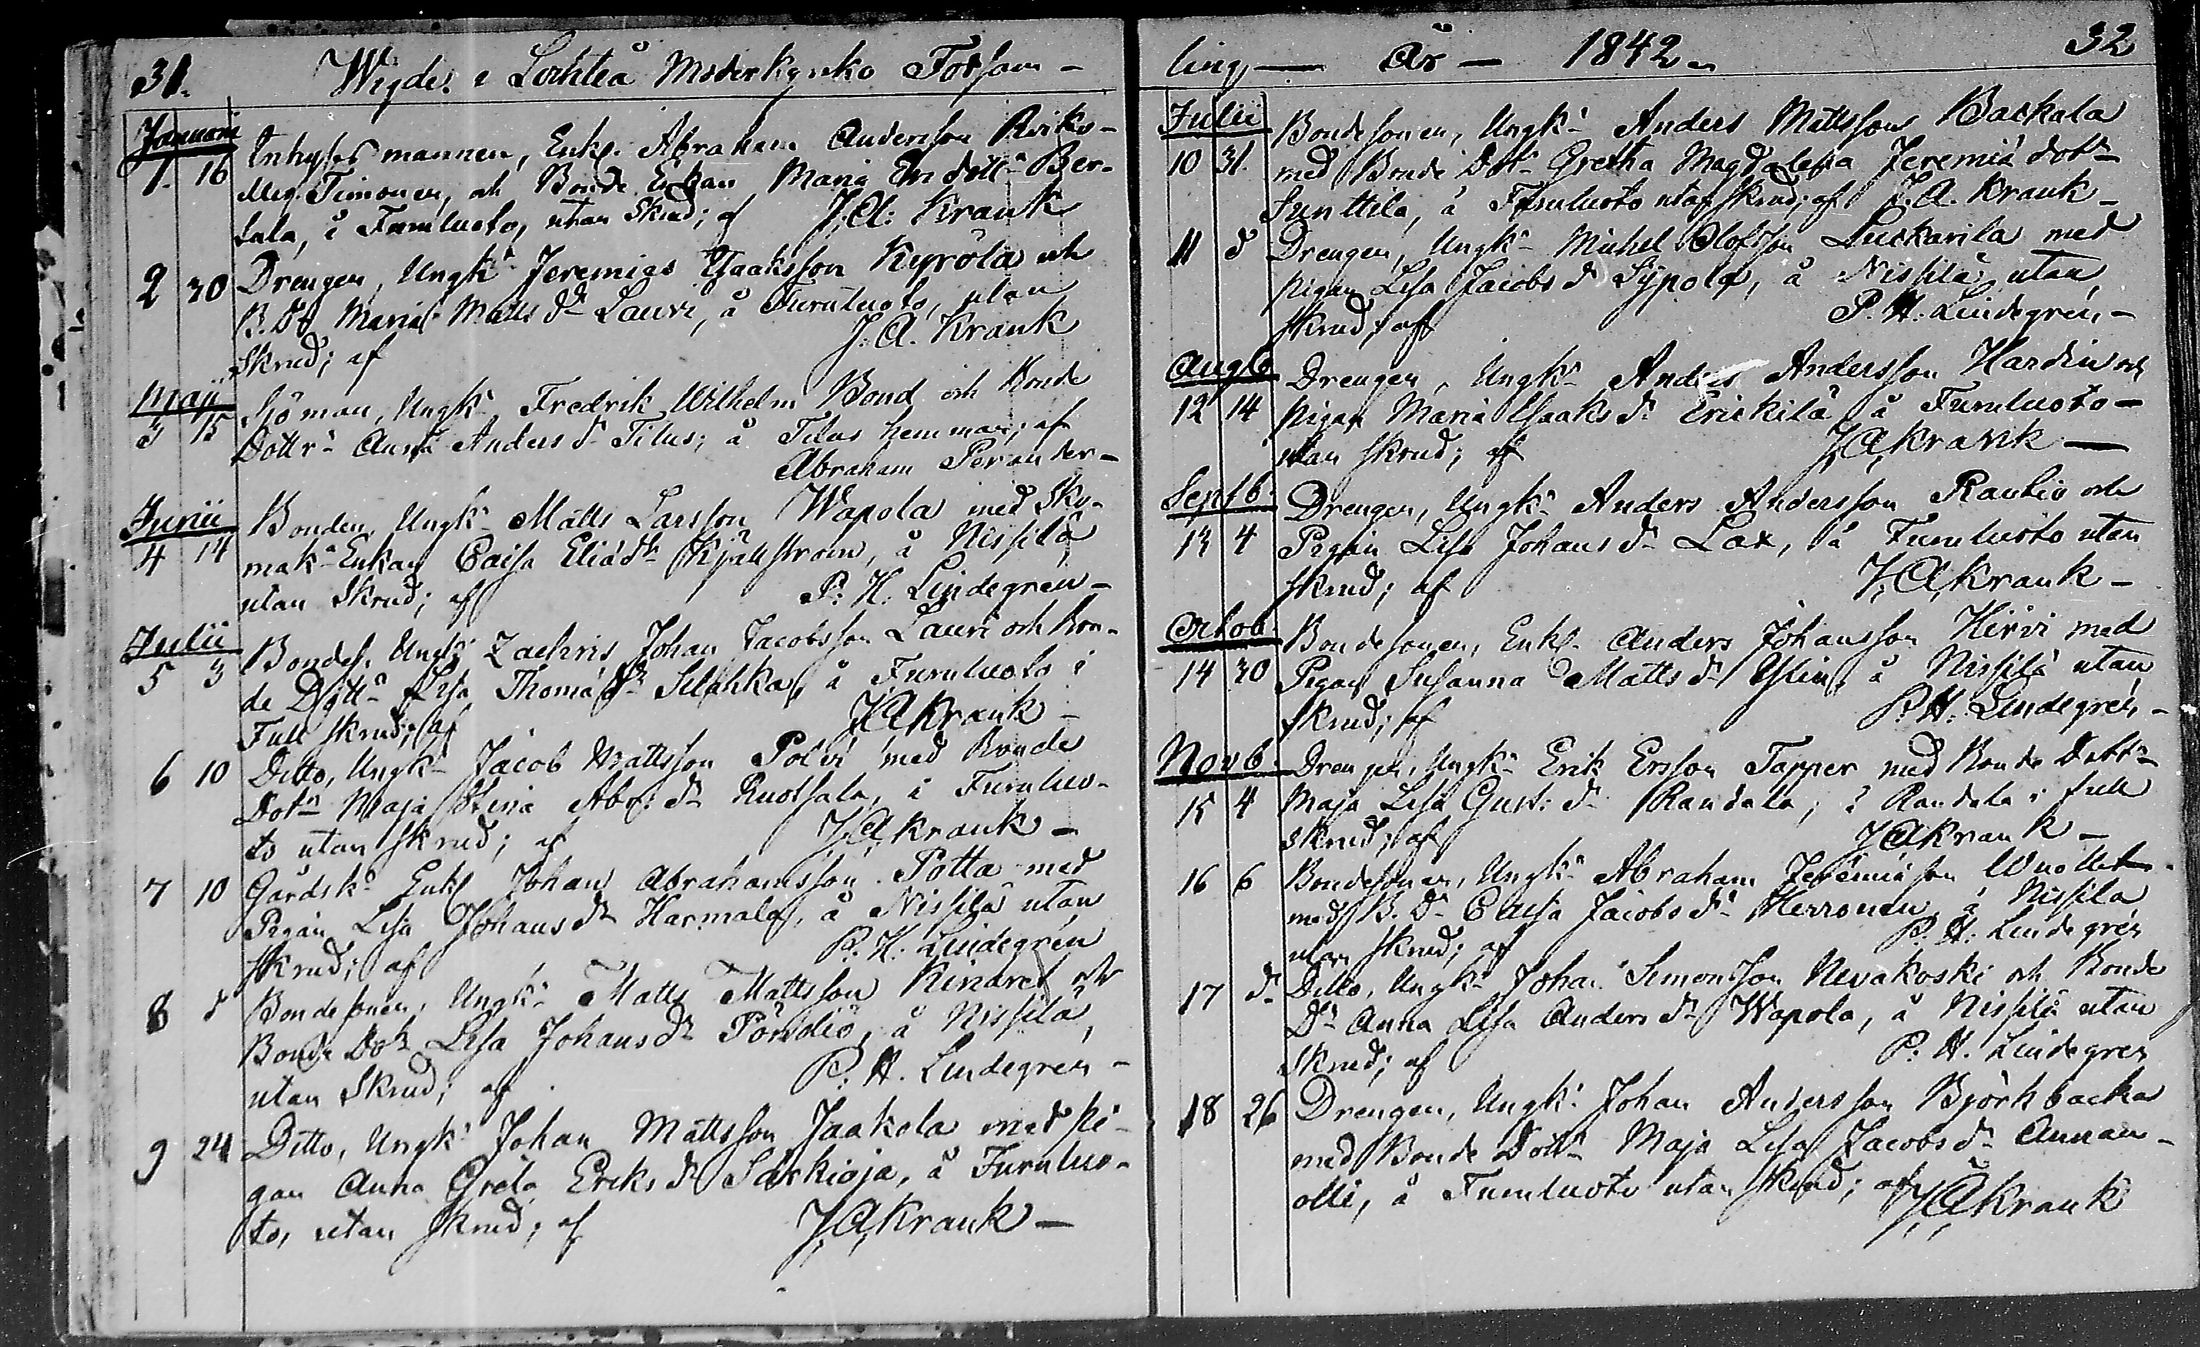 31. Wigde i Lochteå Moderkyrko Försam-
Januarii
1. 16 Inhyses mannen, Enkl. Abraham Andersson
Timonen, och Bonde Enkan Maria Ber-
tala, å Furuluoto, utan Skrud; af J. A. Krank
2 30 Drengen, Ungk. Jeremias Isaaksson Kyrölä och
B. Dr Maria Matts dr Lauri, å Furuluoto, utan
Skrud; af J. A. Krank
Maji
3 15 Sjöman, Ungk. Fredrik Wilhelm Bond och Bonde
Dottr. Anna Anders dr Tilus; å Tilus hemman; af
Abraham Perander-
Junii
4 14 Bonden, Ungk. Matts Larsson Wapola med Sko-
mak. Enkan Caisa Eliædr Kjällström, å Nissilä
utan Skrud; af P. H. Lindegren-
Julii
5 3 Bondes. Ungk. Zachris Johan Jacobsson Lauri och Bon-
de Dottr Lisa Thomædr Silahka, å Furuluoto i
Full skrud; af J. A. Krank-
6 10 Ditto, Ungk. Jacob Mattsson Polvi med Bonde
Dotr Maja Stina Abr: dr Ruotsala, i Furuluo-
to utan skrud; af J. A. Krank-
7 10 Gårdsk. Enkl Johan Abrahamsson Potta med
Pigan Lisa Johans dr Harmala, å Nissilä utan
Skrud; af P. H. Lindegrén
8 d Bondesonen, Ungk. Matts Mattsson Kindret och
Bonde Dotr Lisa Johans dr Pöndiö, å Nissilä,
utan Skrud; af P. H. Lindegren-
9 24 Ditto, Ungk. Johan Mattsson Jaakola med Pi-
gan Anna Greta Eriks dr Särkioja, å Furuluo-
to, utan skrud; af J. A. Krank-
ling, — År — 1842. 32
Julii
10 31. Bondesonen, Ungk. Anders Mattsson Backala
med Bonde Dotr Gretha Magdalena Jeremiæ dotr
Junttila, å Furuluoto utan skrud; af J. A. Krank-
11 d Drengen, Ungk. Michel Olofsson Luckarila med
pigan Lisa Jacobs dr Sypola, å Nissilä utan
skrud; af P. H. Lindegrén-
Aug6
12 14 Drengen, Ungk. Anders Andersson Hardin och
pigan Maria Isaaks dr Erickilä å Furuluoto-
utan skrud; af J. A. Krank-
Septb.
13 4 Drengen, Ungk. Anders Andersson Rautio och
Pigan Lisa Johans dr Lax, å Furuluoto utan
skrud; af J. A. Krank-
Octob.
14 30 Bondesonen, Enkl. Anders Johansson Hirvi med
Pigan Susanna Matts dr Yslin, å Nissilä utan
skrud; af P. H. Lindegrén-
Novb.
15 4 Drengen, Ungk. Erik Ersson Tapper med Bonde Dottr
Maja Lisa Gust: dr Randala; i Randala i full
skrud; af J. A. Krank-
16 6 Bondesonen, Ungk. Abraham Jeremiæson
med B. Dr Caisa Jacobs dr Herronen å Nissilä
utan skrud; af P. H. Lindegrén
17 d Ditto, Ungk. Johan Simonsson Nevakoski och Bonde
Dr Anna Lisa Anders dr Wapola, å Nissilä utan
skrud; af P. H. Lindegren
18 26 Drengen, Ungk. Johan Andersson Björkbacka
med Bonde Dottr Maja Lisa Jacobs dr Annan-
olli, å Furuluoto utan skrud; af J. A. Krank